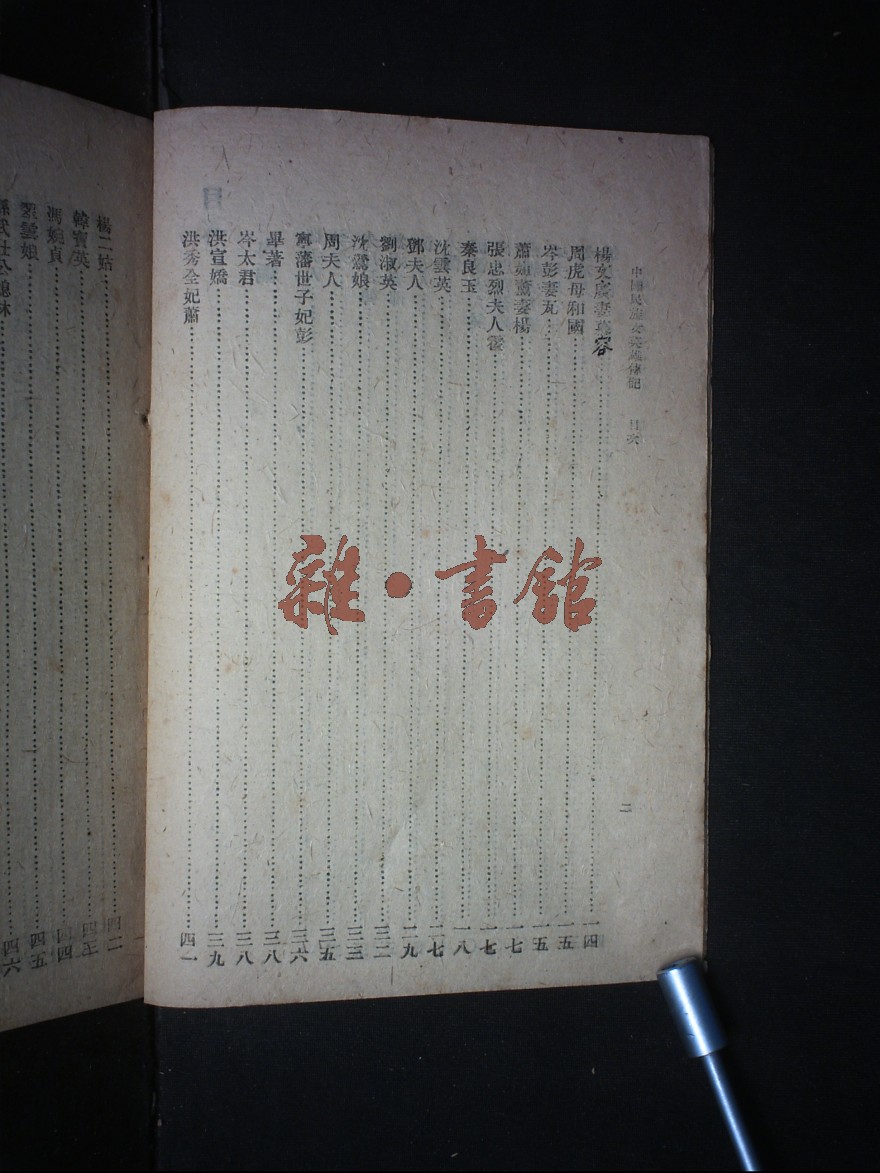 中國民族女英雄傳記 目次
二
楊文廣妻慕容 一四
周虎母和國 一五
岑彭妻瓦 一五
蕭如薰妻楊 一七
張忠烈夫人霍 一七
秦良玉 一八
沈雲英 二七
鄧夫人 二九
劉淑英 三二
沈鸞娘 三三
周夫人 三五
寧藩世子妃彭 三六
畢著 三八
岑太君 三八
洪宣嬌 三九
洪秀全妃蕭 四一
楊二姑 四二
韓寶英
馮婉貞 四四
雲娘 四五
四六
雜·書館